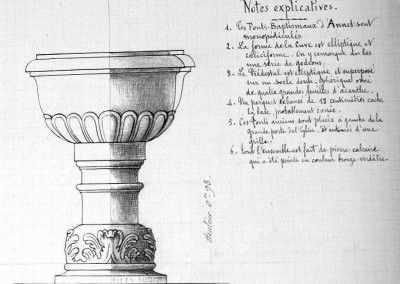 Notes explicatives.
1. Les Fonts Baptismaux d'Annet sont
monopédiculés
2. La forme de la Cuve est elliptique et
caliciforme. On y remarque au bas
une série de godrons.
3. Le Piédestal est elliptique et superposé
sur un socle demi-sphérique orné
de quatre grandes feuilles d'acanthe.
4. Un parquet exhaussé de 13 centimètres cache
la base, probablement carrée.
5. Ces Fonts anciens sont placés à gauche de la
grande porte de l'Eglise, et entourés d'une
grille.
6. Tout l'ensemble est fait de pierre calcaire
qui a été peinte en couleur bronze verdâtre.